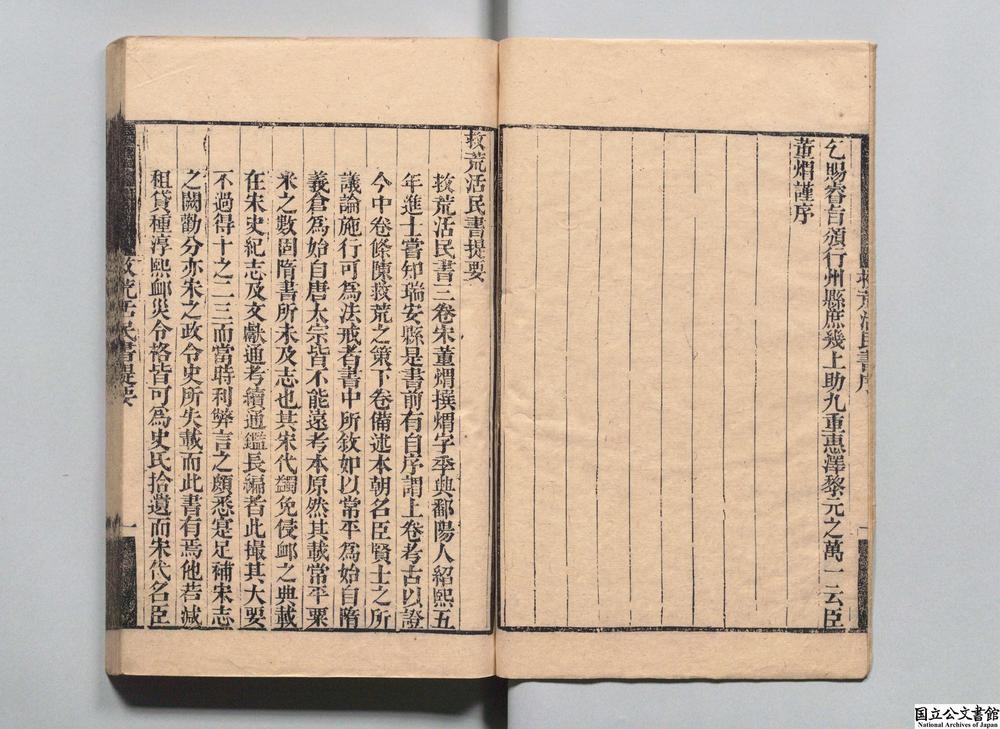 乞賜睿旨頒行州縣庶幾上助九重惠澤黎元之萬一云臣
董煟謹序
救荒活民書提要
救荒活民書三卷宋董煟撰煟字季興鄱陽人紹熙五
年進士嘗知瑞安縣是書前有自序謂上卷考古以證
今中卷條陳救荒之策下卷備述本朝名臣賢士之所
議論施行可為法戒者書中所敘如以常平為始自隋
義倉為始自唐太宗皆不能遠考本原然其載常平粟
米之數固隋書所未及志也其宋代蠲免侵䘏之典載
在宋史紀志及文獻通考續通鑑長編者此撮其大要
不過得十之二三而當時利弊言之頗悉寔足補宋志
之闕勸分亦宋之政令史所失載而此書有焉他若減
租貸種淳熙䘏災令格皆可為史氏拾遺而宋代名臣
救荒活民書提要
一
国立公文書館
National Archives of Japan